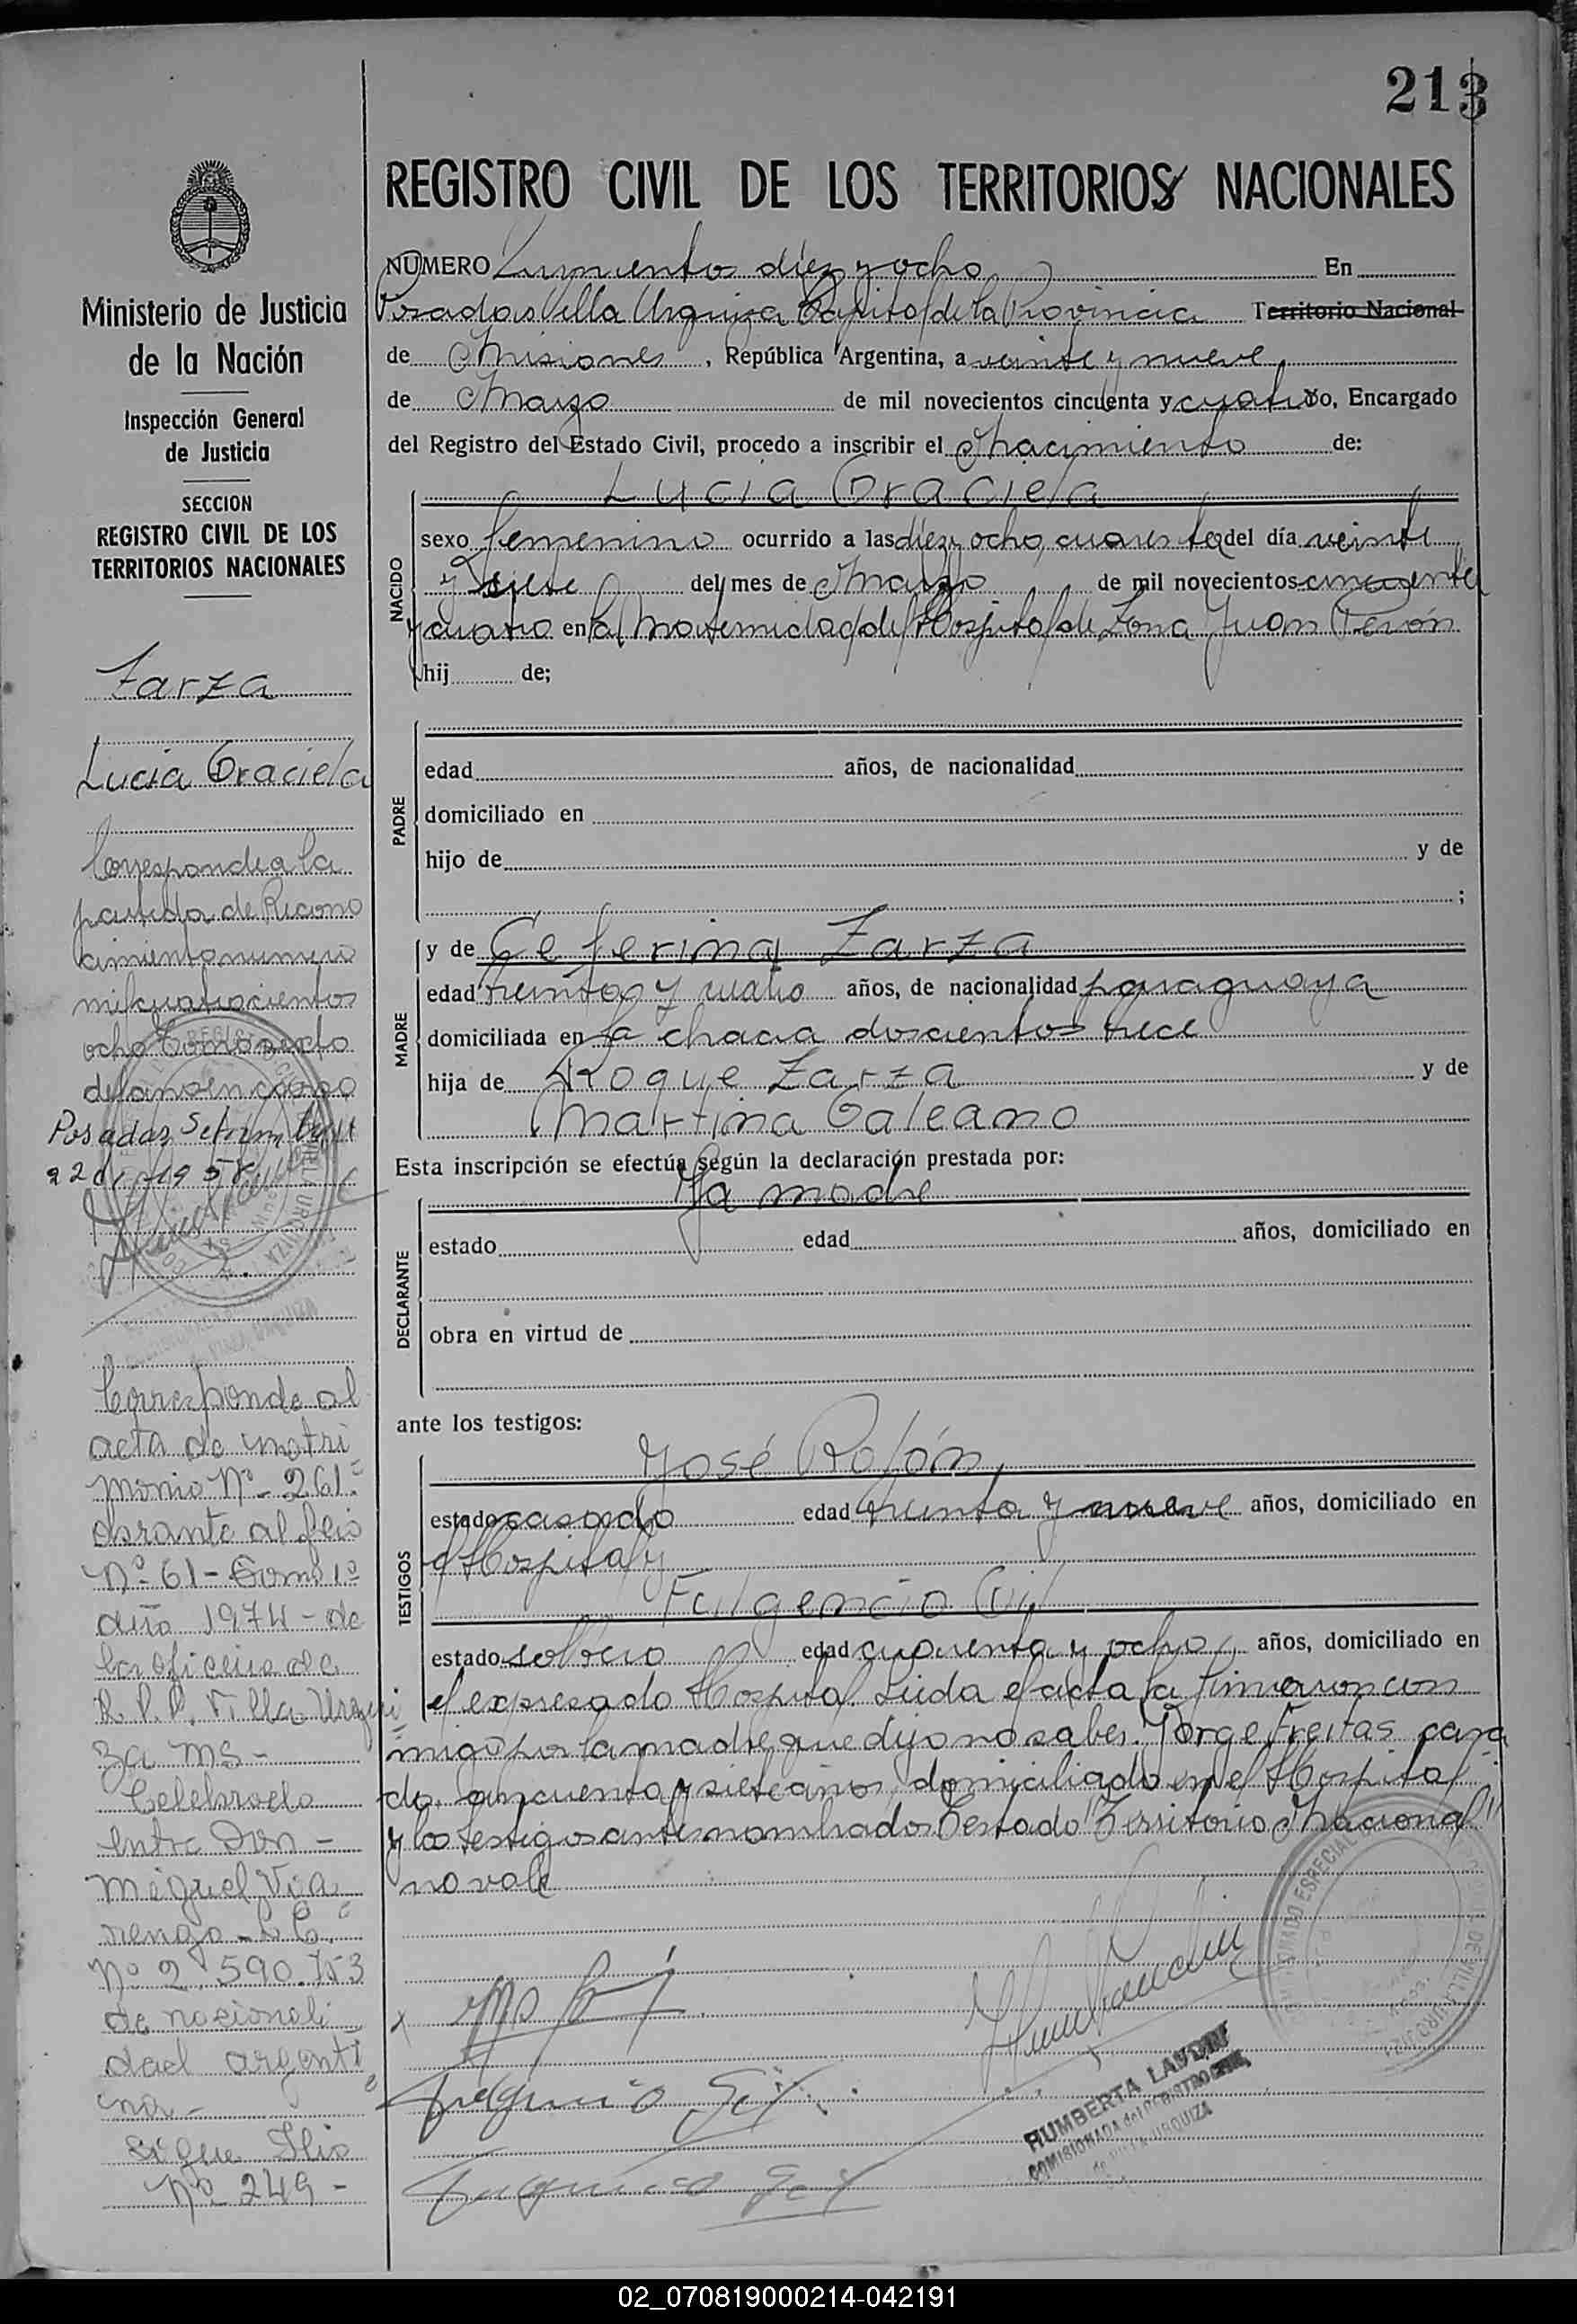 213
REGISTRO CIVIL DE LOS TERRITORIOS NACIONALES
NÚMERO diez y ocho En
Posadas Villa Urquiza Capital de la Provincia Territorio Nacional
de Misiones, República Argentina, a veinte y nueve
de Marzo de mil novecientos cincuenta y cuatro Yo, Encargado
del Registro del Estado Civil, procedo a inscribir el Nacimiento de:
Lucia Graciela
NACIDO
sexo femenino ocurrido a las diez y ocho, cuarenta del día veinte
y siete del mes de Marzo de mil novecientos cincuenta
y cuatro en la Maternidad del Hospital de Zona Juan Perón
hij de;
PADRE
edad años, de nacionalidad
domiciliado en
hijo de y de
;
MADRE
y de Ceferina Zarza
edad treinta y cuatro años, de nacionalidad paraguaya
domiciliada en la chacra doscientos trece
hija de Roque Zarza y de
Martina Galeano
Esta inscripción se efectúa según la declaración prestada por:
La madre
DECLARANTE
estado edad años, domiciliado en
obra en virtud de
ante los testigos:
TESTIGOS
José Rolón,
estado casado edad treinta y nueve años, domiciliado en
el Hospital y
Fulgencio Gil
estado soltero edad cuarenta y ocho, años, domiciliado en
el expresado Hospital. Leida el acta la firmaron con
migo por la madre que dijo no saber. Jorge Freitas, casa
do, cincuenta y siete años, domiciliado en el Hospital
y los testigos antes nombrados. Testado "Territorio Nacional"
no vale
HUMBERTA LANDIN
COMISIONADA del REGISTRO CIVIL
de VILLA URQUIZA
Ministerio de Justicia
de la Nación
Inspección General
de Justicia
SECCION
REGISTRO CIVIL DE LOS
TERRITORIOS NACIONALES
Zarza
Lucia Graciela
Corresponde a la
partida de Recono
cimiento numero
mil cuatrocientos
ocho Tomo sexto
del año en curso
Posadas Setiembre
22 de 1958
Corresponde al
acta de matri
monio Nº 261-
obrante al folio
Nº 61 - Tomo 1º
año 1974 - de
la oficina de
R. P. P. Villa Urqui
za Ms -
Celebrado
entre Don -
Miguel
Nº 2.590.153
de nacionali
dad argenti
na -
Sigue Flio
Nº 249 -
02_070819000214-042191